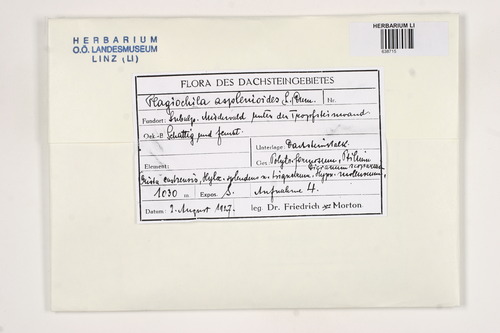 HERBARIUM
O.Ö. LANDESMUSEUM
LINZ (LI)
HERBARIUM LI
FLORA DES DACHSTEINGEBIETES
Plagiochila asplenioides L. Dum. Nr.
Fundort: Subalp. Mischwald unter der Tropfsteinwand
Oek.-B Schattig und feucht
Unterlage: Dachsteinkalk
Element: Ges Polytr. formosum, Ptilium
crista castrensis, Hyloc. splendens u. triquetrum, Hypn. molluscum, Dicranum scoparium
1030 m Expos. S. Aufnahme 4.
Datum: 2. August 1927. leg Dr. Friedrich Morton